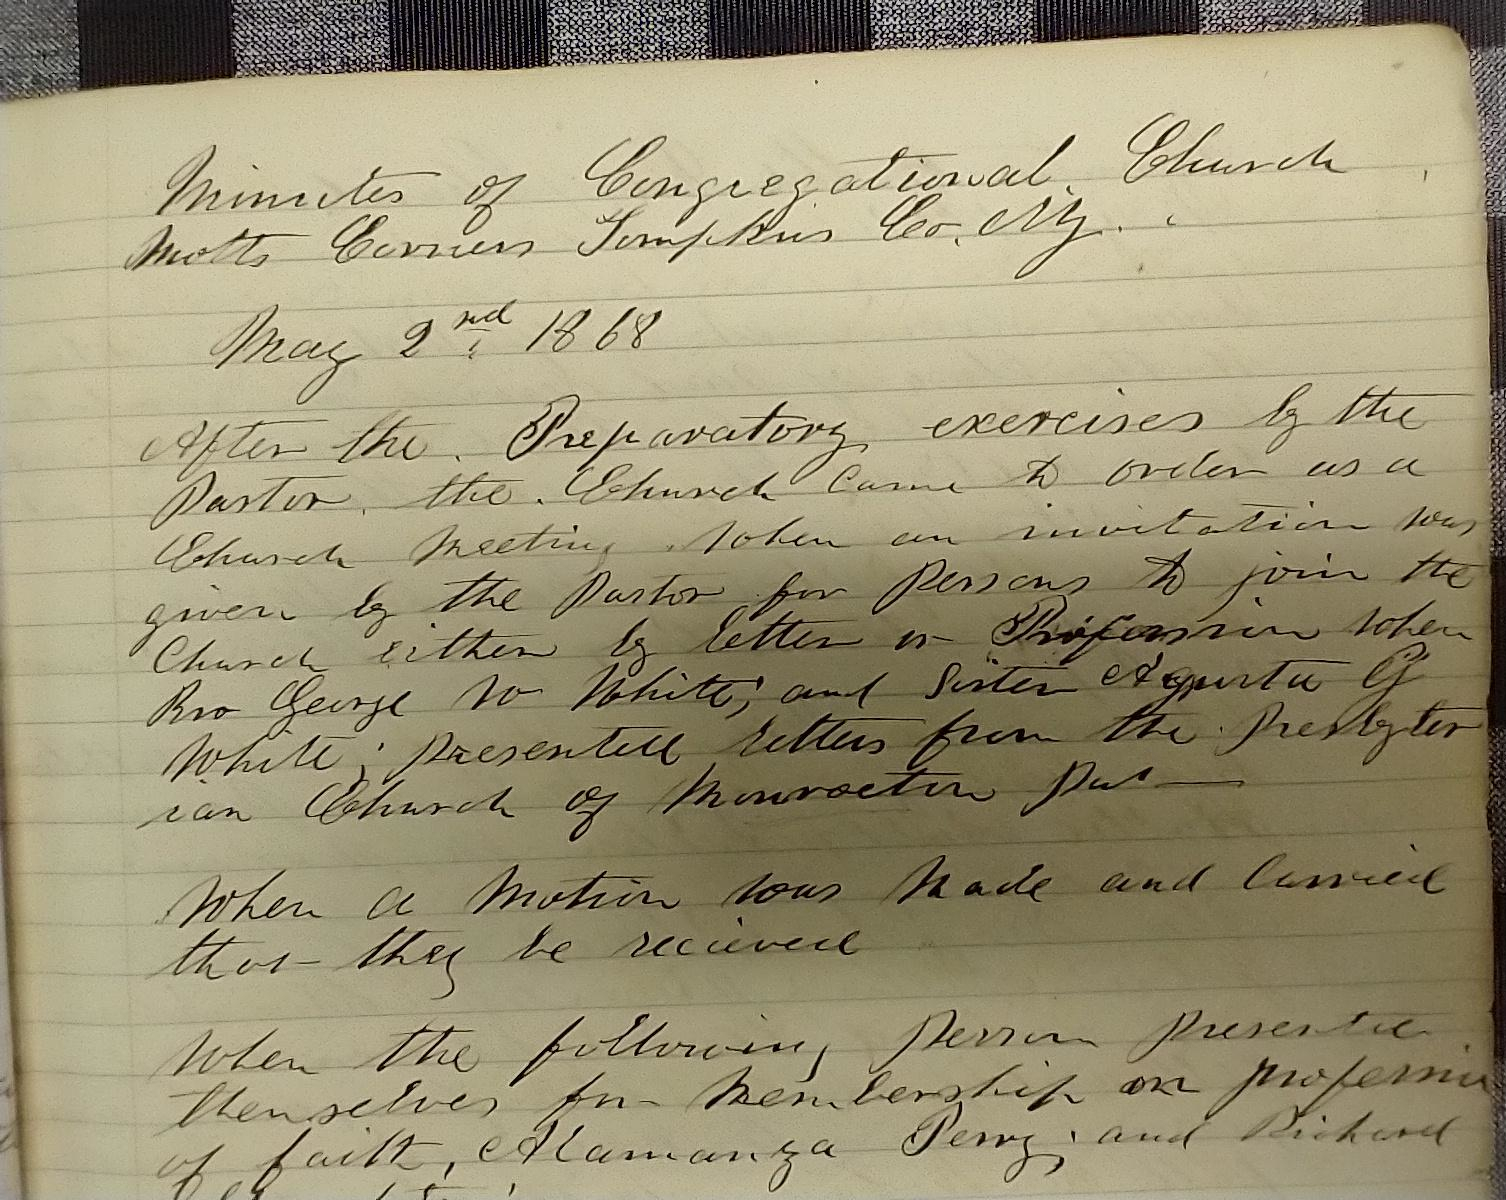 Minutes of Congregational Church
Motts Corners Tompkins Co. NY.
May 2nd 1868
After the Preparatory exercises by the
Pastor, the Church came to order as a
Church Meeting, when an invitation was
given by the Pastor for persons to join the
Church either by letter or Profession when
Bro George W White; and Sister Agusta G
White; presented letters from the Presbyter
ian Church of
When a Motion was Made and Carried
that they be recieved
When the following person presente
themselves for Membership on profession
of faith, Alamanza Perry; and Richard